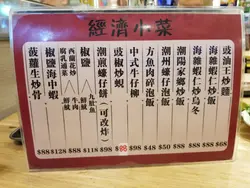 經濟小菜
豉油王炒麵 $68
海鮮蝦仁炒飯 $88
海鮮蝦仁炒烏冬 $88
潮陽家鄉炒飯 $88
潮州蠔仔泡飯 $50
方魚肉碎泡飯 $48
中式牛仔柳 $98
豉椒炒蜆 $88
潮煎蠔仔餅(可改炸) $98
椒鹽 九肚魚 鮮魷 $118
西蘭花炒 腐乳通菜 牛肉 鮮魷 $88
椒鹽海中蝦 $128
菠蘿生炒骨 $88